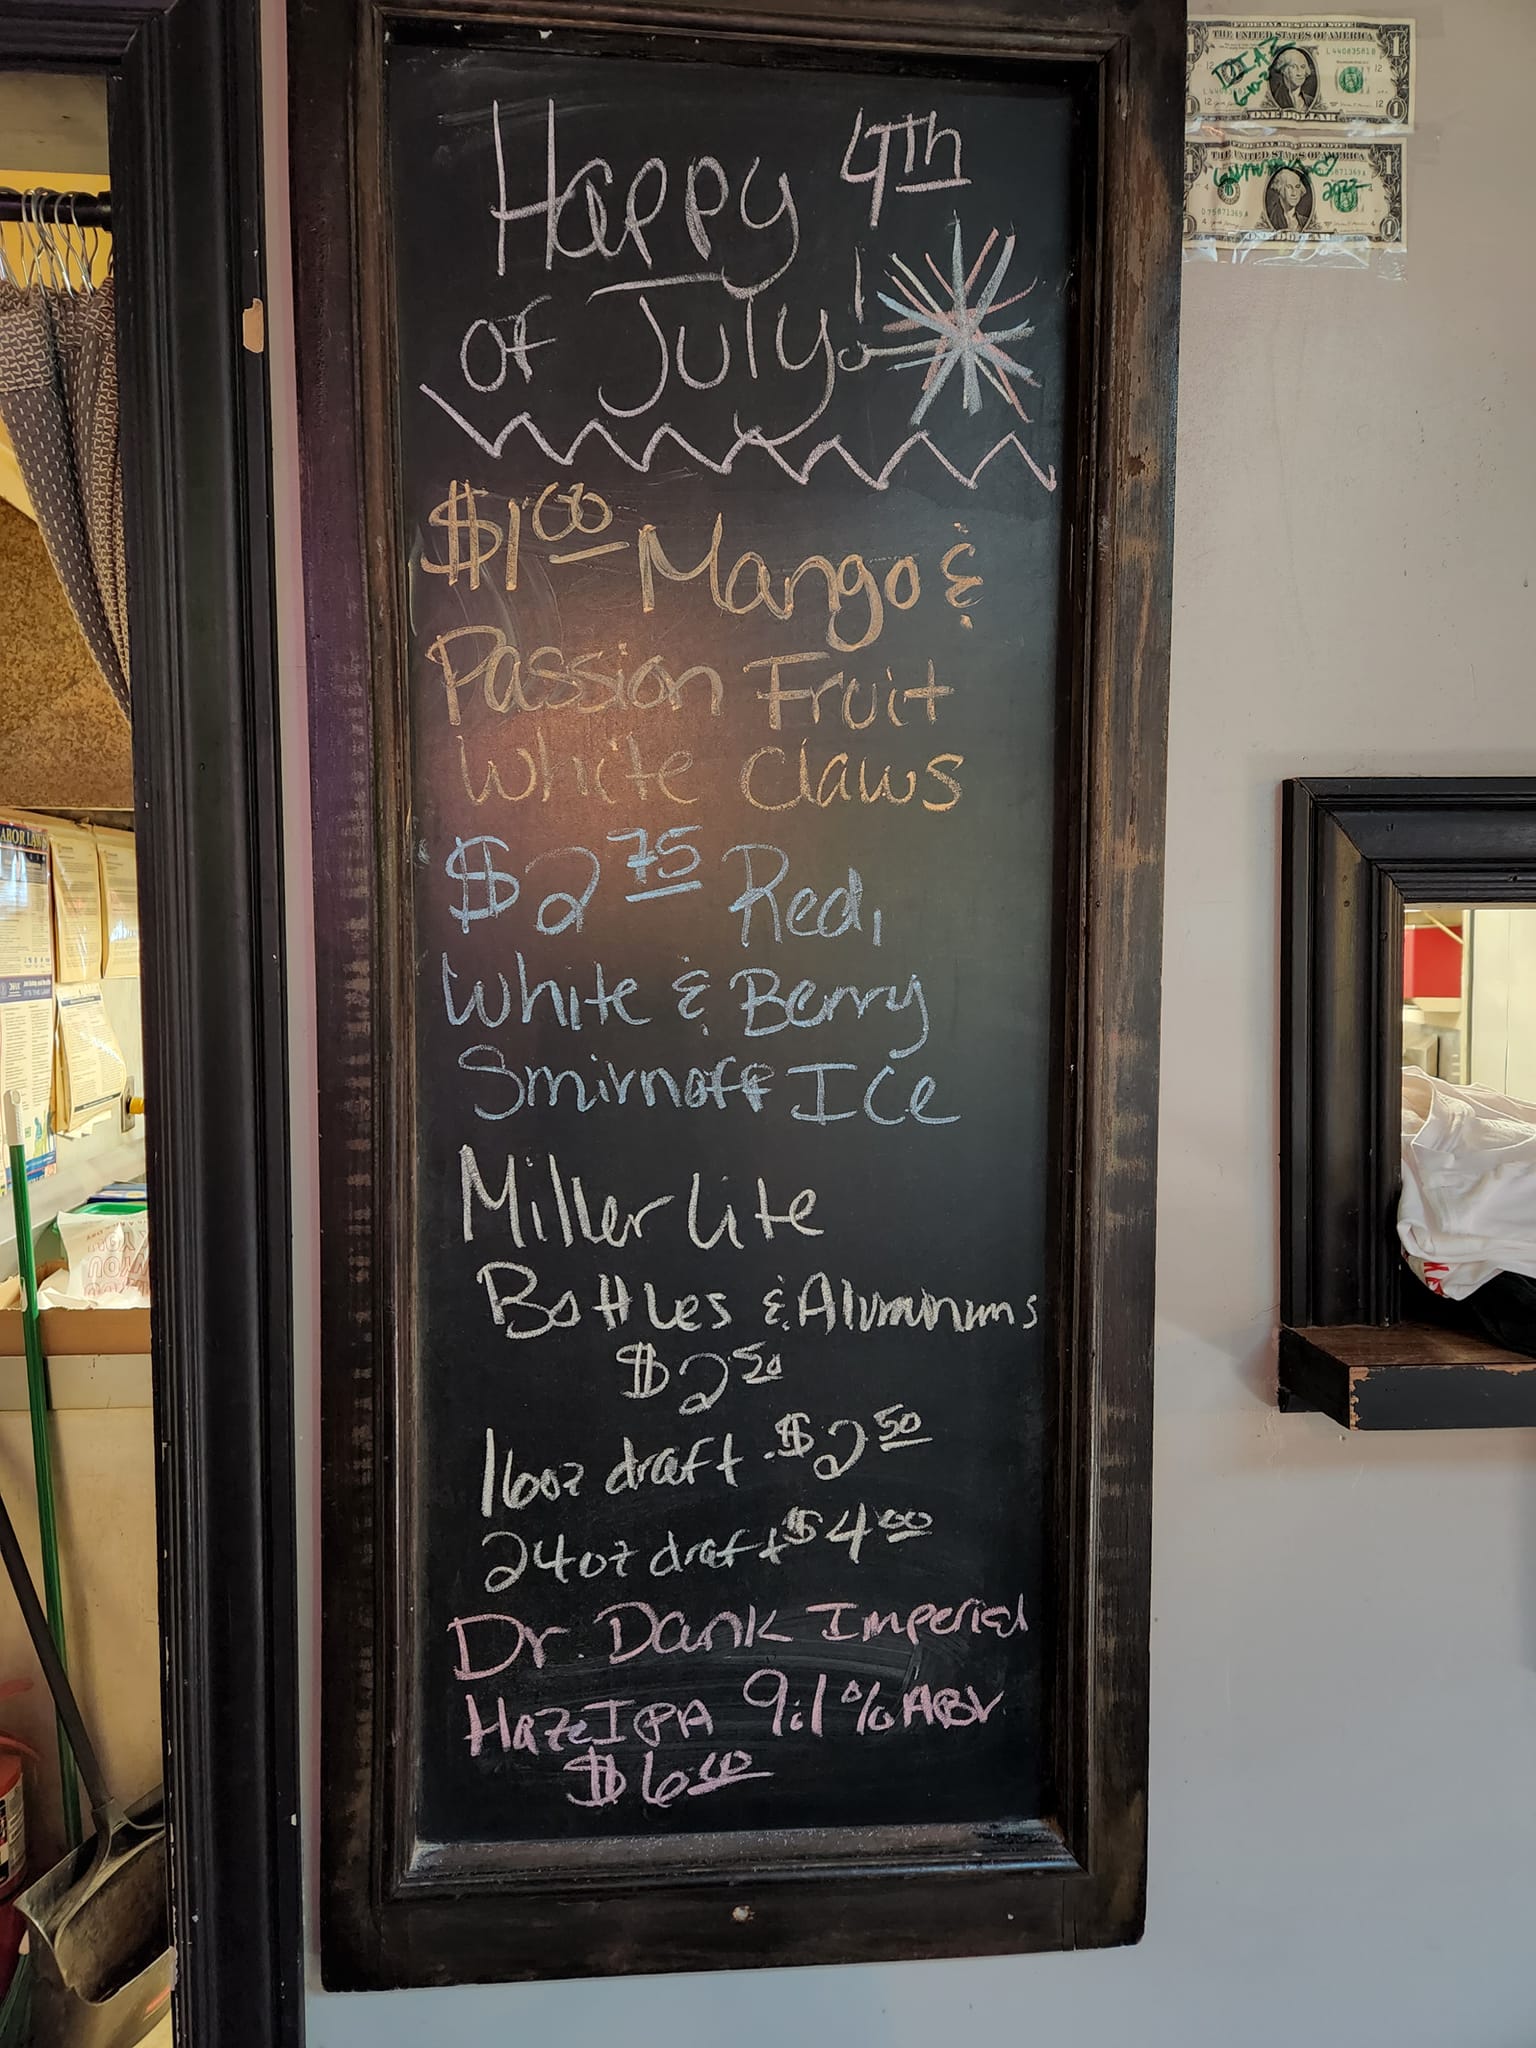 Happy 4th
of July!
$1.00 Mango &
Passion Fruit
White Claws
$2.75 Red,
White & Berry
Smirnoff ICe
Miller Lite
Bottles & Aluminums
$2.50
16oz draft $2.50
24oz draft $4.00
Dr. Dank Imperial
Haze IPA 9.1% ABV
$6.00
FEDERAL RESERVE NOTE
THE UNITED STATES OF AMERICA
L 44083581 B
DIAZ
ONE DOLLAR
THE UNITED STATES OF AMERICA
2022
ONE DOLLAR
ABOR LAW